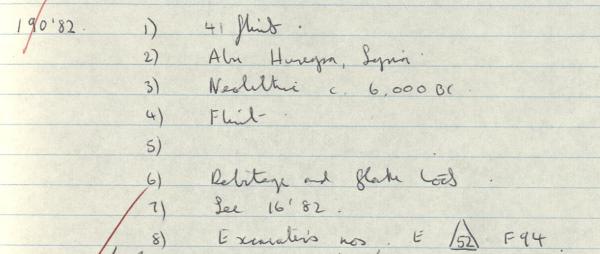 190'82. 1) 41 flint.
2) Abu Hureyra, Syria.
3) Neolithic c. 6,000 BC
4) Flint.
5)
6) Debitage and flake tools.
7) See 16'82.
8) Excavator's nos. E 52 F94